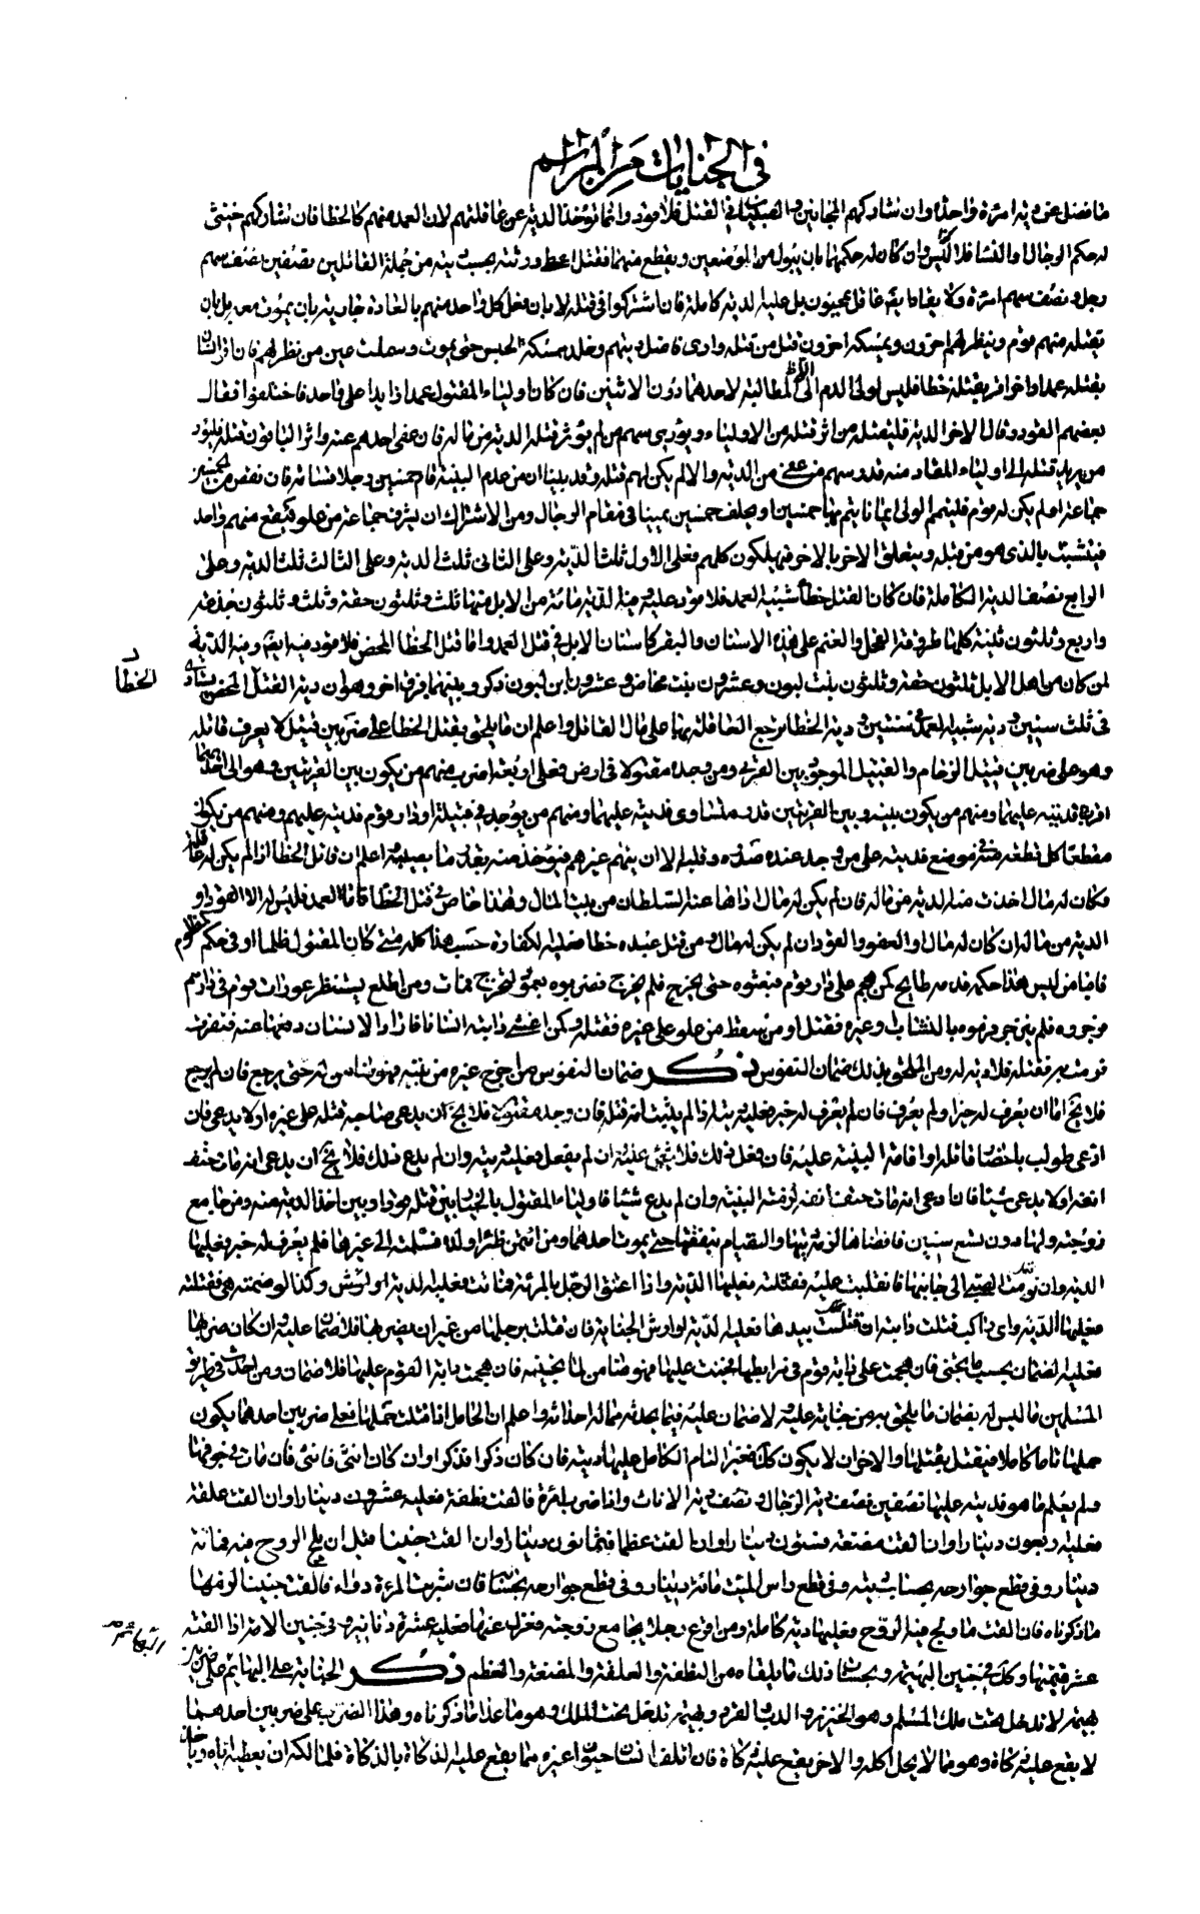 في الجنايات من المراسم
ما فضل عن دية امرأة واحدة وان شاركهم المجانين والصبيان في القتل فلا قود وانما تؤخذ الدية عن عاقلتهم لان العمد منهم كالخطا فان شاركهم خنثى
له حكم الرجال او النسا فلا لبس وان كان له حكمهما بان يبول من الموضعين ويقطع منهما فقتل اعطى ورثته بحسب ديته من جملة القاتلين نصفين نصف سهم
رجل ونصف سهم امرأة ولا يقاد عاقل بمجنون بل عليه الدية كاملة فان اشتركوا في قتله لا بان فعل كل واحد منهم بالعادة جارية بان يموت معه بل بان
يقتله منهم قوم وينظر لهم اخرون ويمسكه اخرون قتل من قتله وادى فاضل ديتهم وخلد ممسكه الحبس حتى يموت وسملت عين من نظر لهم فان اقر انسان
بقتله عمدا واخر اقر بقتله خطا فليس لولي الدم الا المطالبة لاحدهما دون الاثنين فان كان اولياء المقتول عمدا زايدا على واحد فاختلفوا فقال
بعضهم القود وقال الاخر الدية فليقتله من اثر قتله من الاولياء ويؤدي سهم من لم يؤثر قتله الدية من ماله فان عفى احدهم عنه واثر الباقون قتله فليؤد
من يريد قتله الى اولياء المقاد منه قدر سهم من عفى من الدية والا لم يكن لهم قتله وقد بينا ان من عدم البينة اقام خمسين رجلا قسامة فان نقص من الخمسين
جماعة او لم يكن له قوم فليتمم الولي ايمانا يتم بها خمسين او يحلف خمسين يمينا في مقام الرجال ومن الاشتراك ان يشرف جماعة من علو فيقع منهم واحد
فيتشبث بالذي هو من قبله ويتعلق الاخر بالاخر فيهلكون كلهم فعلى الاول ثلث الدية وعلى الثاني ثلث الدية وعلى الثالث ثلث الدية وعلى
الرابع نصف الدية الكاملة فان كان القتل خطأ شبيه العمد فلا قود عليه فيه الدية مائة من الابل منها ثلث وثلثون حقة وثلث وثلثون جذعة
واربع وثلثون ثنية كلها طروقة الفحل والغنم على هذه الاسنان والبقر كاسنان الابل في قتل العمد واما قتل الخطا المحض فلا قود فيه ايضا وفيه الدية
لمن كان من اهل الابل ثلثون حقة وثلثون بنت لبون وعشرون بنت مخاض وعشرون ابن لبون ذكر وبينهما فرق اخر وهو ان دية القتل المحض يستادى
الخطأ
في ثلث سنين ودية شبيه العمد في سنتين ودية الخطا ترجع العاقلة بها على مال القاتل واعلم ان ما يلحق بقتل الخطا على ضربين قتيل لا يعرف قاتله
وهو على ضربين قتيل الزحام والقتيل الموجود بين القرى ومن وجد مقتولا في ارض فعلى اربعة اضرب منهم من يكون بين القريتين وهو الى احديهما
اقرب فديته عليها ومنهم من يكون بينه وبين القريتين قدر متساوى فديته عليهما ومنهم من يوجد في قبيلة او دار قوم فديته عليهم ومنهم من يكون
مقطعا كل قطعة منه في موضع فديته على من وجد عنده صدره وقلبه الا ان يتهم غيرهم فيؤخذ منه بعد ما يصيبه اعلم ان قاتل الخطا اذا لم يكن له عاقلة
وكان له مال اخذت منه الدية من ماله فان لم يكن له مال اداها عنه السلطان من بيت المال وهذا خاص في قتل الخطا فاما العمد فليس له الا القود او
الدية من ماله ان كان له مال او العفو والقود ان لم يكن له مال ومن قتل عبده خطا فعليه الكفارة حسب هذا كله متى كان المقتول ظلما او في حكم مظلوم
فاما من ليس هذا حكمه فدمه طايح كمن هجم على دار قوم فبعثوه حتى يخرج فلم يخرج فضربوه بعمود ليخرج فمات ومن اطلع يستنظر عورات قوم في دارهم
فزجروه فلم ينزجر فرموه بالنشاب وغيره فقتل او من سقط من علو على غيره فقتله وكمن اغشى دابته انسانا فاراد الانسان دفعها عنه فنفرت
فرمت به فقتله فلا دية له ومن الملحق بذلك ضمان النفوس ذكر ضمان النفوس من اخرج غيره من بيته فهو ضامن له حتى يرجع فان لم يرجع
فلا يخ اما ان يعرف له خبر او لم يعرف فان لم يعرف له خبر فعليه ديته اذا لم يثبت انه قتل فان وجد مقتولا فلا يخ ان يدعي صاحبه قتله على غيره او لا يدعي فان
ادعى طولب باحضار قاتله او اقامة البينة عليه فان فعل ذلك فلا شي عليه ان لم يفعل فعليه ديته وان لم يدع ذلك فلا يخ ان يدعي انه مات حتف
انفه او لا يدعي شيئا فان ادعى انه مات حتف انفه لزمته البينة وان لم يدع شيئا فاولياء المقتول بالخيار بين قتله قودا وبين اخذ الدية منه ومن جامع
زوجته ولها دون تسع سنين فافضاها لزمه ديتها والقيام بنفقتها حتى يموت احدهما ومن ائتمن ظئرا ولده فسلمته الى غيرها فلم يعرف له خبر فعليها
الدية وان نومت الصبي الى جانبها فانقلبت عليه فقتلته فعليها الدية واذا اعنف الرجل بالمرئة فماتت فعليه الدية وكذا لو ضمته هي فقتلته
فعليها الدية واي راكب قتلت دابته ان قتلت بيدها فعليه الدية او ارش الجناية فان قتلت برجلها من غير ان يضربها فلا ضمان عليه وان كان ضربها
فعليه الضمان بحسب ما يجنى فان هجمت على دابة قوم في مرابطها فجنت عليها فهو ضامن لما تجنيه فان هجمت دابة القوم عليها فلا ضمان ومن احدث في طريق
المسلمين ما ليس له يضمان ما يلحق به من جناية عليه لا ضمان عليه فيما يحدثه مما له احداثه واعلم ان الحامل اذا قتلت حملها فعلى ضربين احدهما يكون
حملها تاما كاملا فيقتل بقتلها والاخر ان لا يكون كك فغير التام الكامل عليها ديته فان كان ذكرا فذكرا وان كان انثى فانثى فان مات في جوفها
ولم يعلم ما هو فديته عليها نصفين نصف دية الرجال ونصف دية الاناث واذا ضرب امرأة فالقت نطفة فعليه عشرون دينارا وان القت علقة
فعليه اربعون دينارا وان القت مضغة فستون دينارا وان القت عظما فثمانون دينارا وان القت جنينا قبل ان يلج الروح فيه فمائة
دينار وفي قطع جوارحه بحساب ديته وفي قطع راس الميت مائة دينار وفي قطع جوارحه بحسابها فان شربت المرءة دواء فالقت جنينا لزمها
ما ذكرناه فان القت ما ولج فيه الروح فعليها دية كاملة ومن افزع رجلا يجامع زوجته فعزل عنها فعليه عشرة دنانير وفي جنين الامة اذا القته
عشر قيمتها وكك في جنين البهيمة وبحساب ذلك ما يلقاه من النطفة والعلقة والمضغة والعظم ذكر الجناية على البهايم على ضربين
بهيمة لا تدخل تحت ملك المسلم وهو الخنزير والدب والقرد وبهيمة تدخل تحت الملك وهو ما عدا ما ذكرناه وهذا الضرب على ضربين احدهما
لا يقع عليه ذكاة وهو مما لا يحل اكله والاخر يقع عليه ذكاة فان اتلف انسان حيوان غيره مما يقع عليه الذكاة بالذكاة فلمالكه ان يعطيه اياه وياخذ